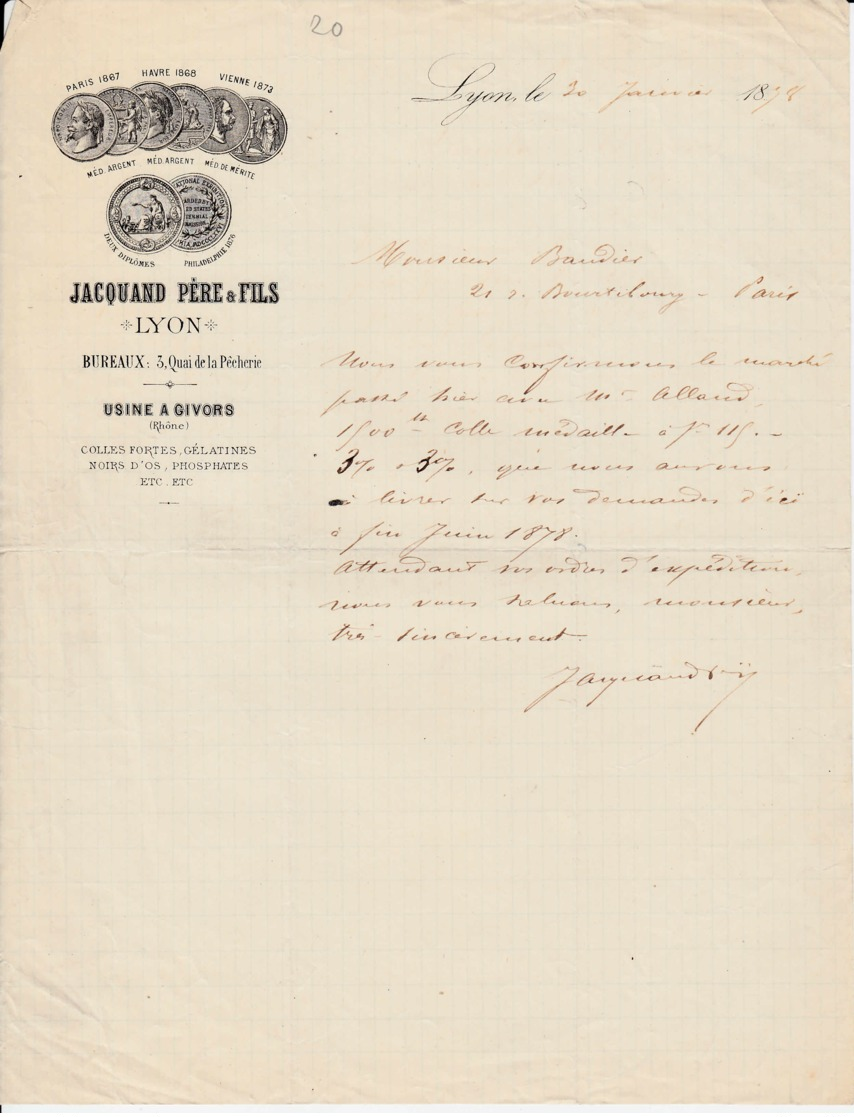 20
PARIS 1867 HAVRE 1868 VIENNE 1873
MÉD. ARGENT MÉD. ARGENT MÉD. DE MÉRITE
DEUX DIPLÔMES PHILADELPHIE 1876
JACQUAND PÈRE & FILS
LYON
BUREAUX: 3, Quai de la Pêcherie
USINE A GIVORS
(Rhône)
COLLES FORTES, GÉLATINES
NOIRS D'OS, PHOSPHATES
ETC. ETC
Lyon, le 20 Janvier 1878
Monsieur Baudier
21 r. Bourtibourg - Paris
Nous vous confirmons le marché
passé hier avec Mr Alland,
1500 k colle médaille à fr 115.-
3% 3%, que nous aurons
à livrer sur vos demandes d'ici
à fin Juin 1878.
Attendant vos ordres d'expédition,
nous vous saluons, monsieur,
très sincèrement.
Jacquand